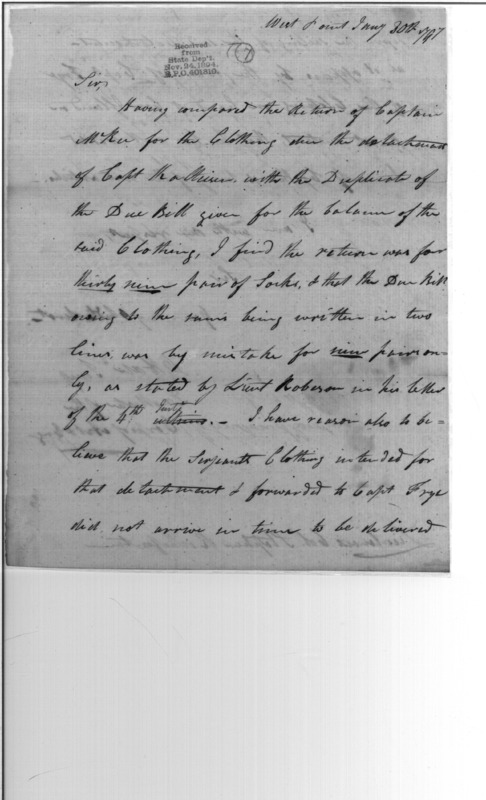 West Point Jany 30th 1797
Received
from
State Dep't.
Nov. 24, 1894.
R.P.O. 401810.
Sir,
Having compared the Return of Captain
McKee for the Clothing due the detachment
of Capt with the Duplicate of
the Due Bill given for the balance of the
said Clothing, I find the return was for
thirty nine pair of Socks, & that the Due Bill
owing to the same being written in two
lines was by mistake for nine pairs on-
ly, as stated by Lieut Roberson in his letter
of the 4th Inst. - I have reason also to be=
lieve that the Serjeants Clothing intended for
that detachment & forwarded to Capt Frye
did not arrive in time to be delivered